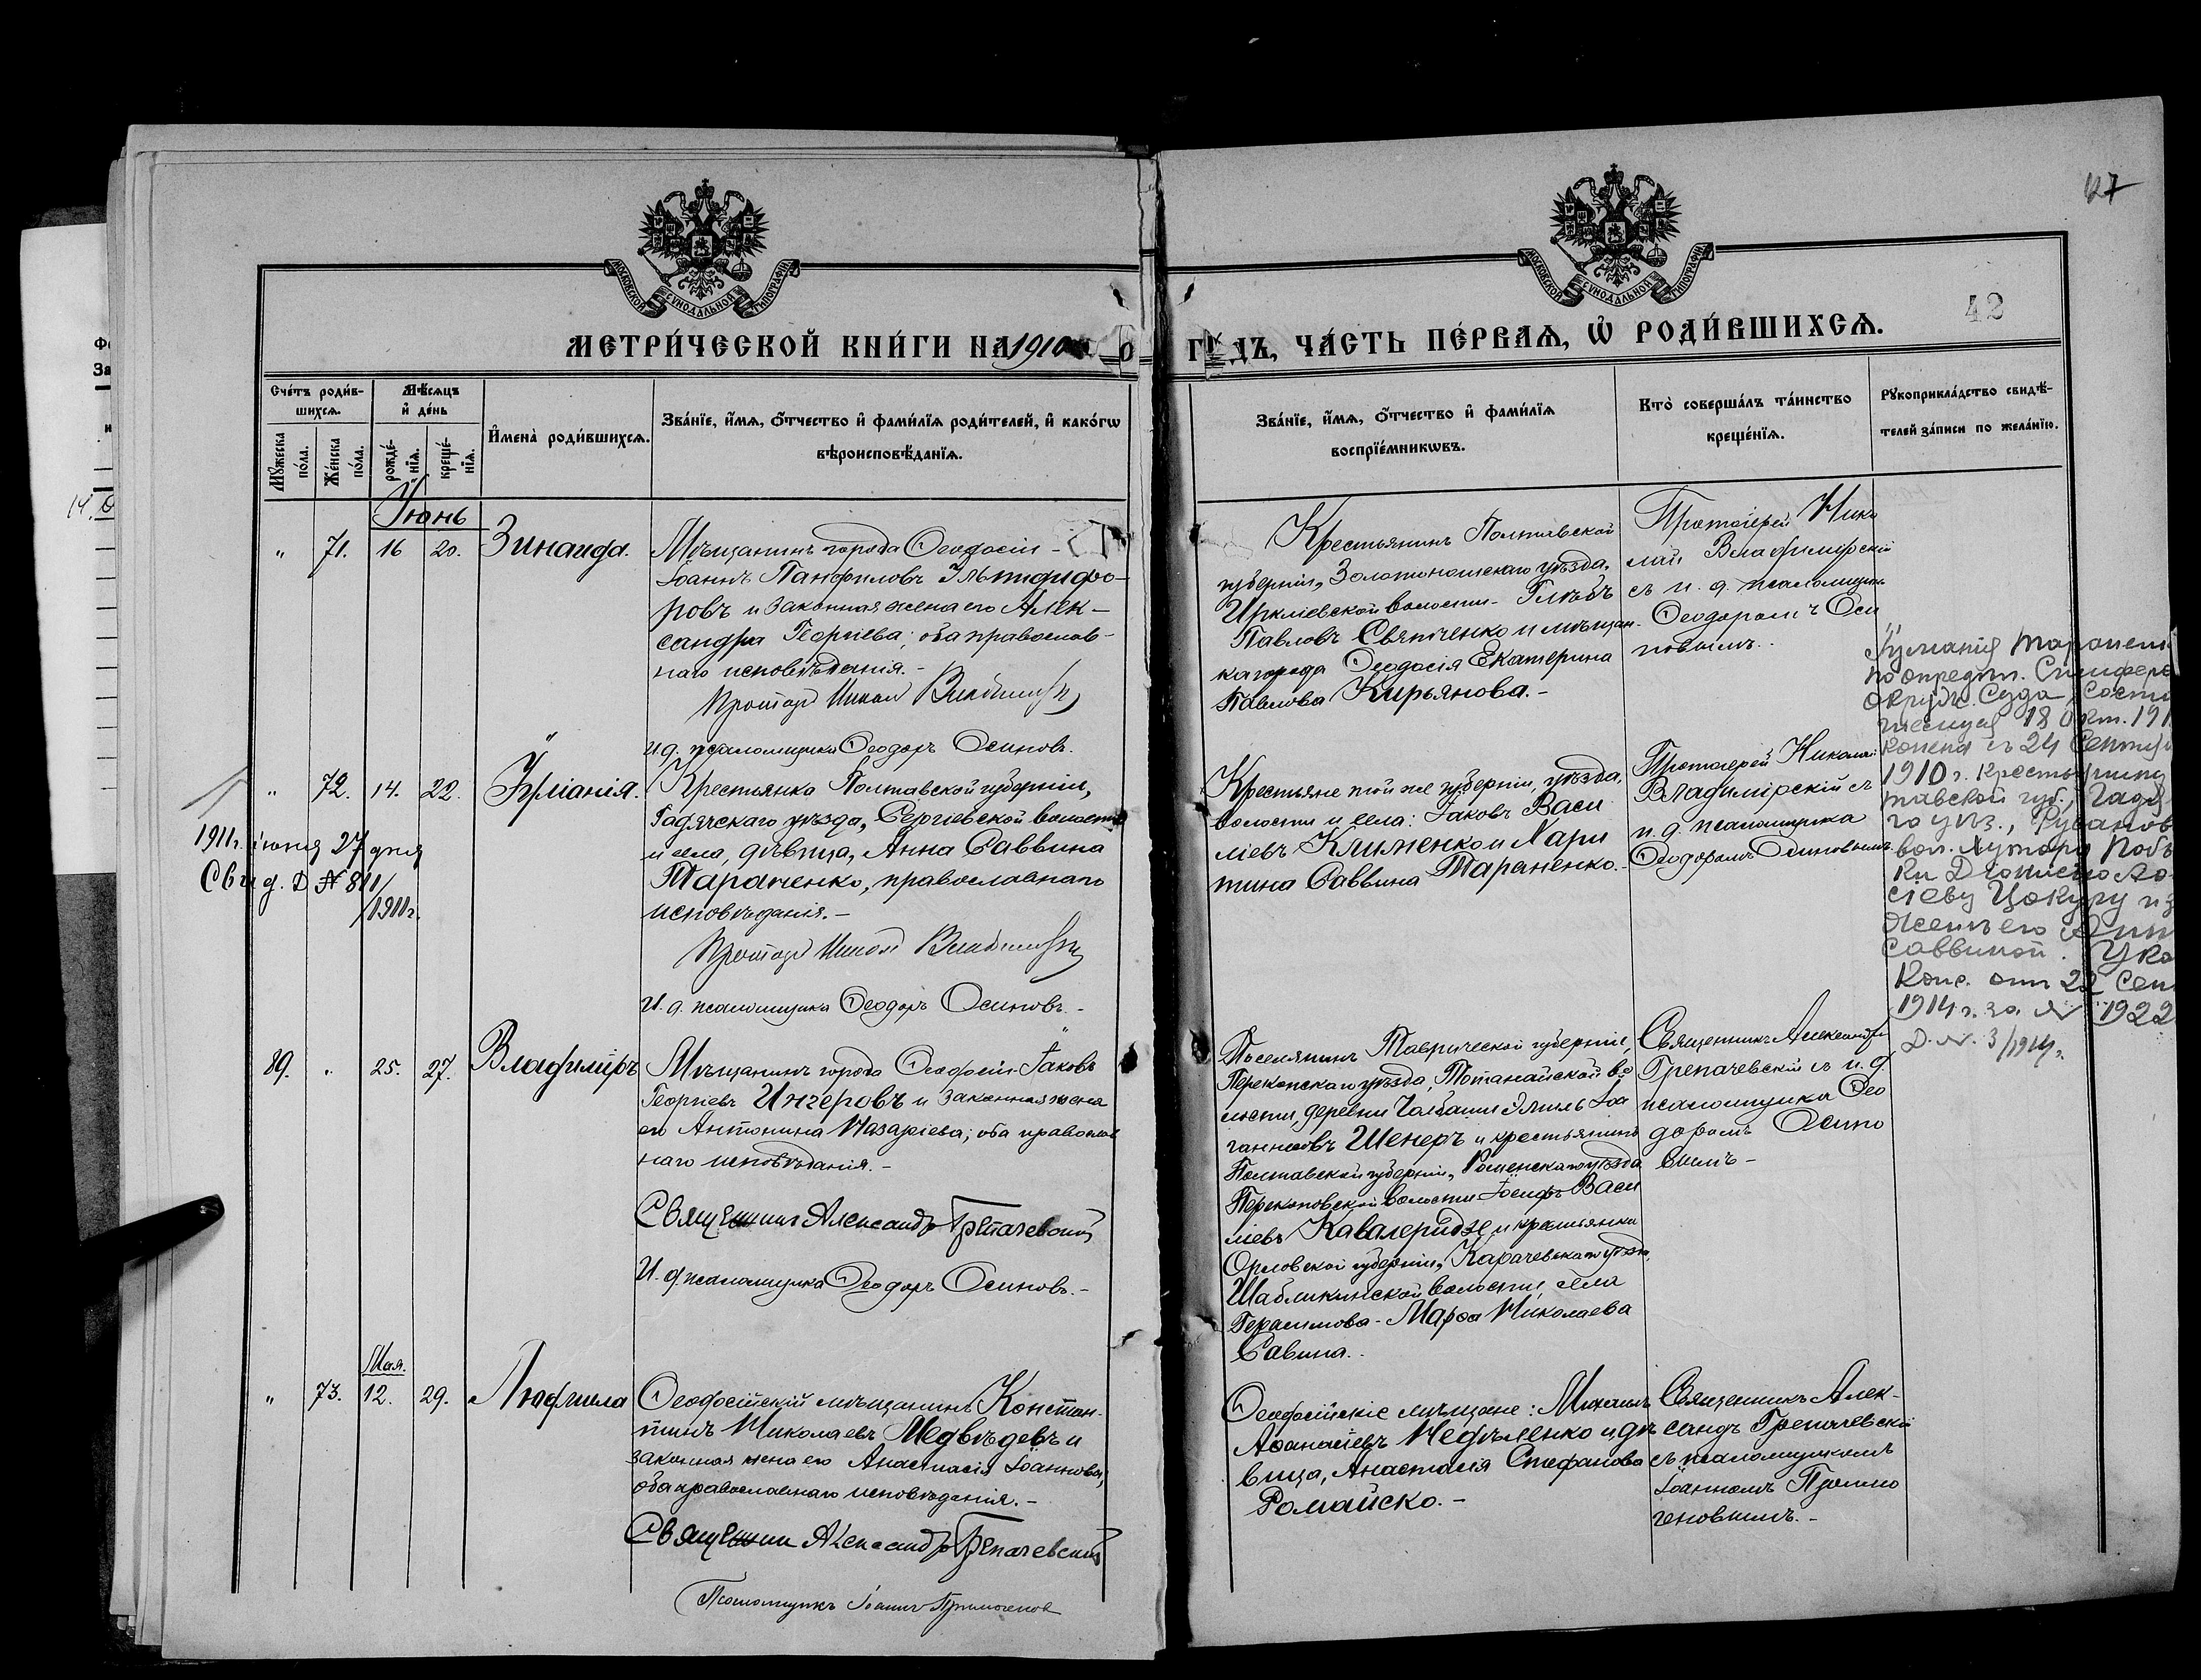 47
42
МОСКОВСКОЙ СѴНОДАЛЬНОЙ ТИПОГРАФІИ
МОСКОВСКОЙ СѴНОДАЛЬНОЙ ТИПОГРАФІИ
МЕТРИ́ЧЕСКОЙ КНИ́ГИ НА 1910 ГОДЪ, ЧА́СТЬ ПЕ́РВАѦ, Ѿ РОДИ́ВШИХСѦ.
Сче́тъ роди́в-
шихсѧ.
Мѣ́сѧцъ
и҆ де́нь
Мꙋ́жеска
по́ла.
Же́нска
по́ла.
рожде́-
нїѧ.
креще́-
нїѧ.
И҆мена̀ роди́вшихсѧ.
Зва́нїе, и҆́мѧ, ѻ҆́тчество и҆ фами́лїѧ роди́телей, и҆ како́гѡ
вѣроисповѣ́данїѧ.
Зва́нїе, и҆́мѧ, ѻ҆́тчество и҆ фами́лїѧ
воспрїе́мникѡвъ.
Кто̀ соверша́лъ та́инство
креще́нїѧ.
Рꙋкоприкла́дство свидѣ́-
телей за́писи по жела́нїю.
Іюнь
" 71. 16 20. Зинаида.
Мѣщанинъ города Ѳеодосіи -
Іоаннъ Панфиловъ Эльпидифо-
ровъ и законная жена его Алек-
сандра Георгіева; оба православ-
наго исповѣданія.-
Протоіер Никол Владимірскі
И.д. псаломщика Ѳеодоръ Осиповъ.
Крестьянинъ Полтавской
губерніи, Золотоношскаго уѣзда,
Ирклиевской волости - Глѣбъ
Павловъ Святченко и мѣщан-
ка города Ѳеодосія Екатерина
Павлова Кирьянова.-
Протоіерей Нико
лай Владимірскій
съ и. д. псаломщика
Ѳеодоромъ Оси
повымъ.
" 72. 14. 22. Іуліанія.
1911г. іюня 27 дня
Свид. Д № 811/
/1911г.
Крестьянка Полтавской губерніи,
Гадячскаго уѣзда, Сергіевской волости
и села, дѣвица, Анна Саввина
Тараненко, православнаго
исповѣданія.-
Протоіер Никол Владимірскі
И. д. псаломщика Ѳеодоръ Осиповъ.-
Крестьяне той же губерніи, уѣзда,
волости и села: Іаковъ Васи
ліевъ Клименко и Хари
тина Саввина Тараненко.-
Протоіерей Николай
Владимірскій съ
и. д. псаломщика
Ѳеодоромъ Осиповымъ.
Іуліанія Таранен
по опредѣл. Симферо
Окружн. Суда, состо
18 Окт. 191
24 Сентяб
1910 г. крестьянину
тавской губ., Гадя
го уѣз., Русанов
вол. хутора
Діонисію
сіеву Цокуру и з
женѣ его Анн
Саввиной. Ука
Конс. отъ 22 Сен
1914 г. за № 1922
Д. № 3/1914г.
89. " 25. 27. Владиміръ
Мѣщанинъ города Ѳеодосіи Іаковъ
Георгіевъ Инжеровъ и законная жена
его Антонина Назаріева; оба православ
наго исповѣданія.-
Священникъ Александръ Грепачевскій
И. д. псаломщика Ѳеодоръ Осиповъ.-
Поселянинъ Таврической губерніи,
Перекопскаго уѣзда, Тотанайской во
лости, деревни Эмиль Іо
ганновъ Шенеръ и крестьянинъ
Полтавской губерніи, Роменскаго уѣзда
Перекоповской волости Іосифъ Васи
ліевъ Кавалеридзе и крестьянка
Орловской губерніи, Карачевскаго уѣзда,
Шаблыкинской волости, села
Герасимова - Марѳа Николаева
Савина.
Священникъ Александръ
Грепачевскій съ и. д.
псаломщика Ѳео
доромъ Осипо
вымъ -
Мая.
" 73. 12. 29. Людмила
Ѳеодосійскій мѣщанинъ Констан-
тинъ Николаевъ Медвѣдевъ и
законная жена его Анастасія Іоаннова,
оба православнаго исповѣданія.-
Священник Александръ Грепачевскій
Псаломщикъ Іоаннъ
Ѳеодосійскіе мѣщане: Михаилъ
Аѳанасіевъ Недѣленко и дѣ
вица, Анастасія Стефанова
Романско.-
Священникъ Алек-
сандръ Грепачевскій
съ псаломщикомъ
Іоанномъ